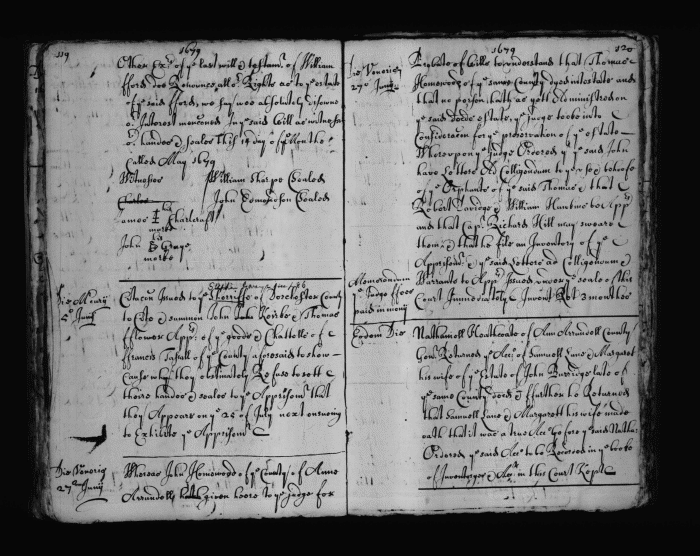 119
1679
Other Ex.rs of ye last will & testamt. of William
ffords doe Renounce all or. Rights as to ye estate
of ye said ffords, we haveing absolutely disowne
or. Interest menconed In ye said Will as witness
or. hands & seales this 19 day of ye Monthe
Called May 1679
Witnesses William Sharpe Sealed
John Edmondson Sealed
James Charlcraft
marke
his
John Graye
marke
Die Mercury
5o Junij
Citacon Issued to ye Sherriffe of Dorchester County
to Cite & summon John Kirke & Thomas
fflowers Appr. of ye goods & Chattells of
ffrancis Tassall of ye County aforesaid to show
Cause why they obstinately Refuse to sett
theire hands & seales to ye Apprisomt. that
they Appeare on ye 25 of July next ensueing
to Exhibite ye Apprisomt.
Die Veneris
27o Junij
Whereas John Homewood of ye County of Anne
Arundell hath given heere to ye Judge for
1679
120
Die Veneris
27o Junij
Probate of Wills to understand that Thomas
Homewood of ye same County dyed intestate and
that no person hath as yett Administred on
ye said estate, ye Judge tooke into
Consideracon for ye preservation of ye estate
Whereupon ye Judge Ordered yt ye said John
have letters Ad Colligendum to ye use & behoofe
of ye Orphants of ye said Thomas & that
Robert Davidge & William Hawkins to Appr
and that Capt. Richard Hill may sweare
them, & that he file an Inventory of ye
Apprisomt. ye said letters ad Colligendum
Warrants to Appr. Issued under ye seale of this
Court Immediately Invent. Ret. 3 monthes
Memorandum
ye Judge ffees
paid in mony
Eodem Die
Nathaniell Heathcoate of Ann Arrundell County
Gen. Returned ye Acct. of Samuell Lane & Margaret
his wife of ye Estate of John Burridge late of
ye same County & ffurther he Returned
that Samuell Lane & Margarett his wife made
oath that it was a true Acct. before ye said Nathan
Ordered ye said Acct. to be Received in ye booke
of Inventoryes & Acts. in this Court Kept